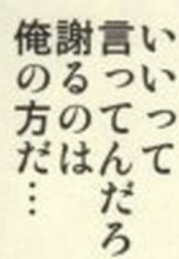 いいって
言ってんだろ
謝るのは
俺の方だ…